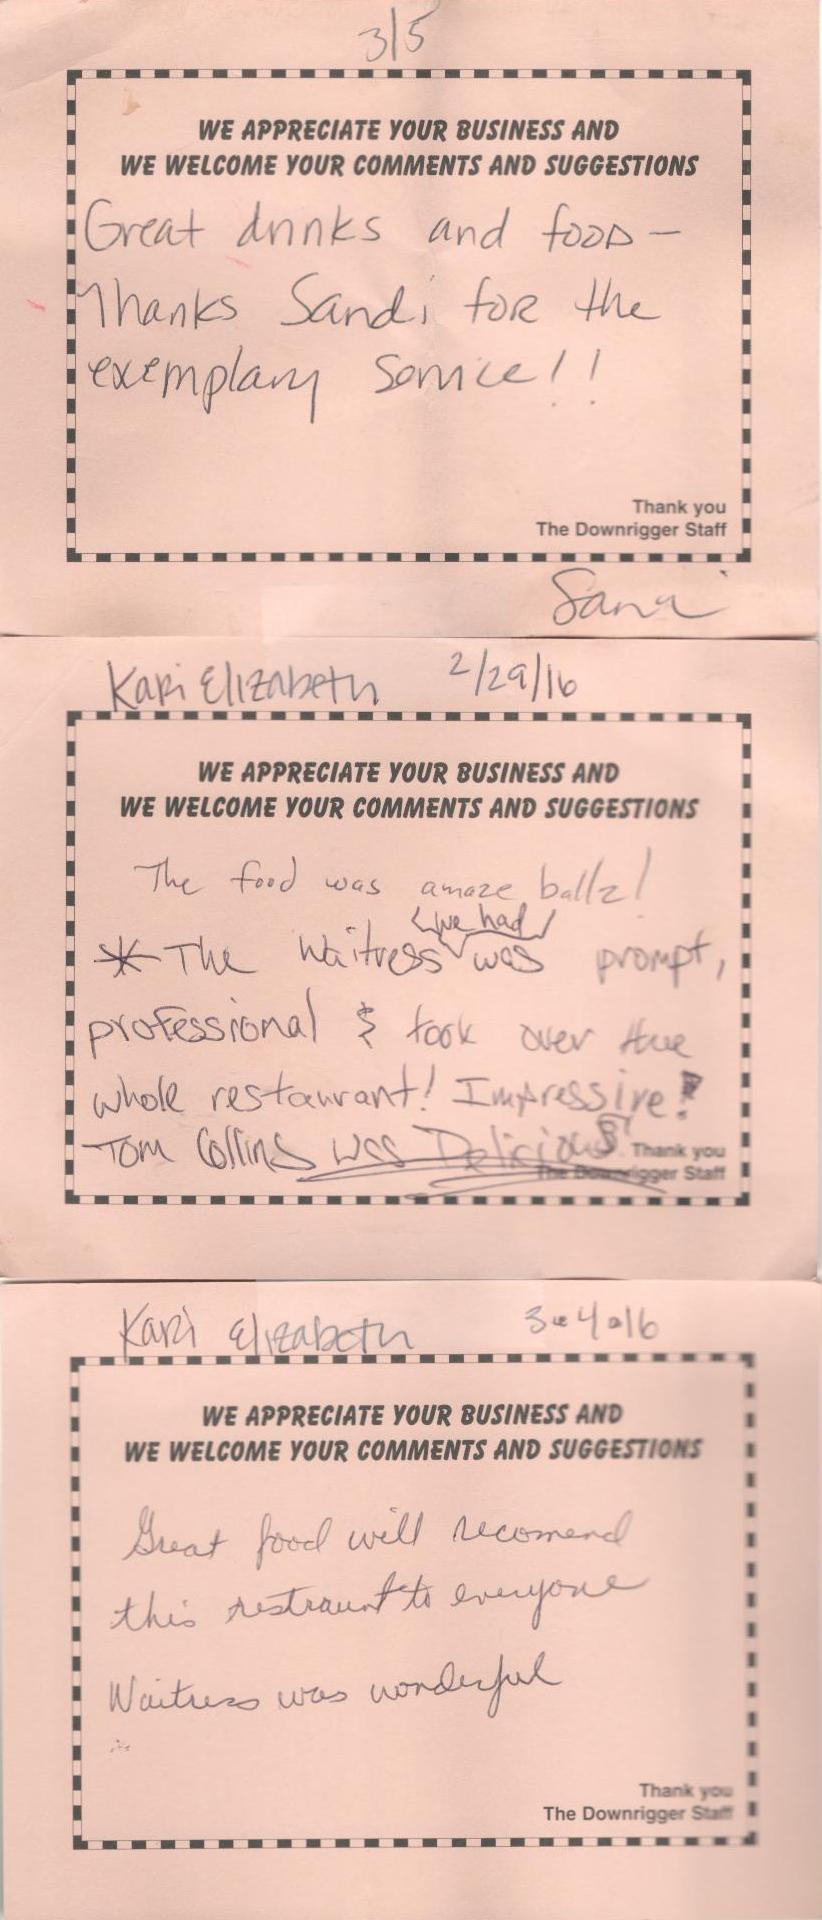 3/5
WE APPRECIATE YOUR BUSINESS AND
WE WELCOME YOUR COMMENTS AND SUGGESTIONS
Great drinks and food -
Thanks Sandi for the
exemplary service!!
Thank you
The Downrigger Staff
Sandi
Kari Elizabeth 2/29/16
WE APPRECIATE YOUR BUSINESS AND
WE WELCOME YOUR COMMENTS AND SUGGESTIONS
The food was amaze ballz!
we had
* The Waitress was prompt,
professional & took over thue
whole restaurant! Impressive!
Tom Collins was Delicious! Thank you
The Downrigger Staff
Kari Elizabeth 3-4-16
WE APPRECIATE YOUR BUSINESS AND
WE WELCOME YOUR COMMENTS AND SUGGESTIONS
Great food will recomend
this restraunt to everyone
Waitress was wonderful
Thank you
The Downrigger Staff